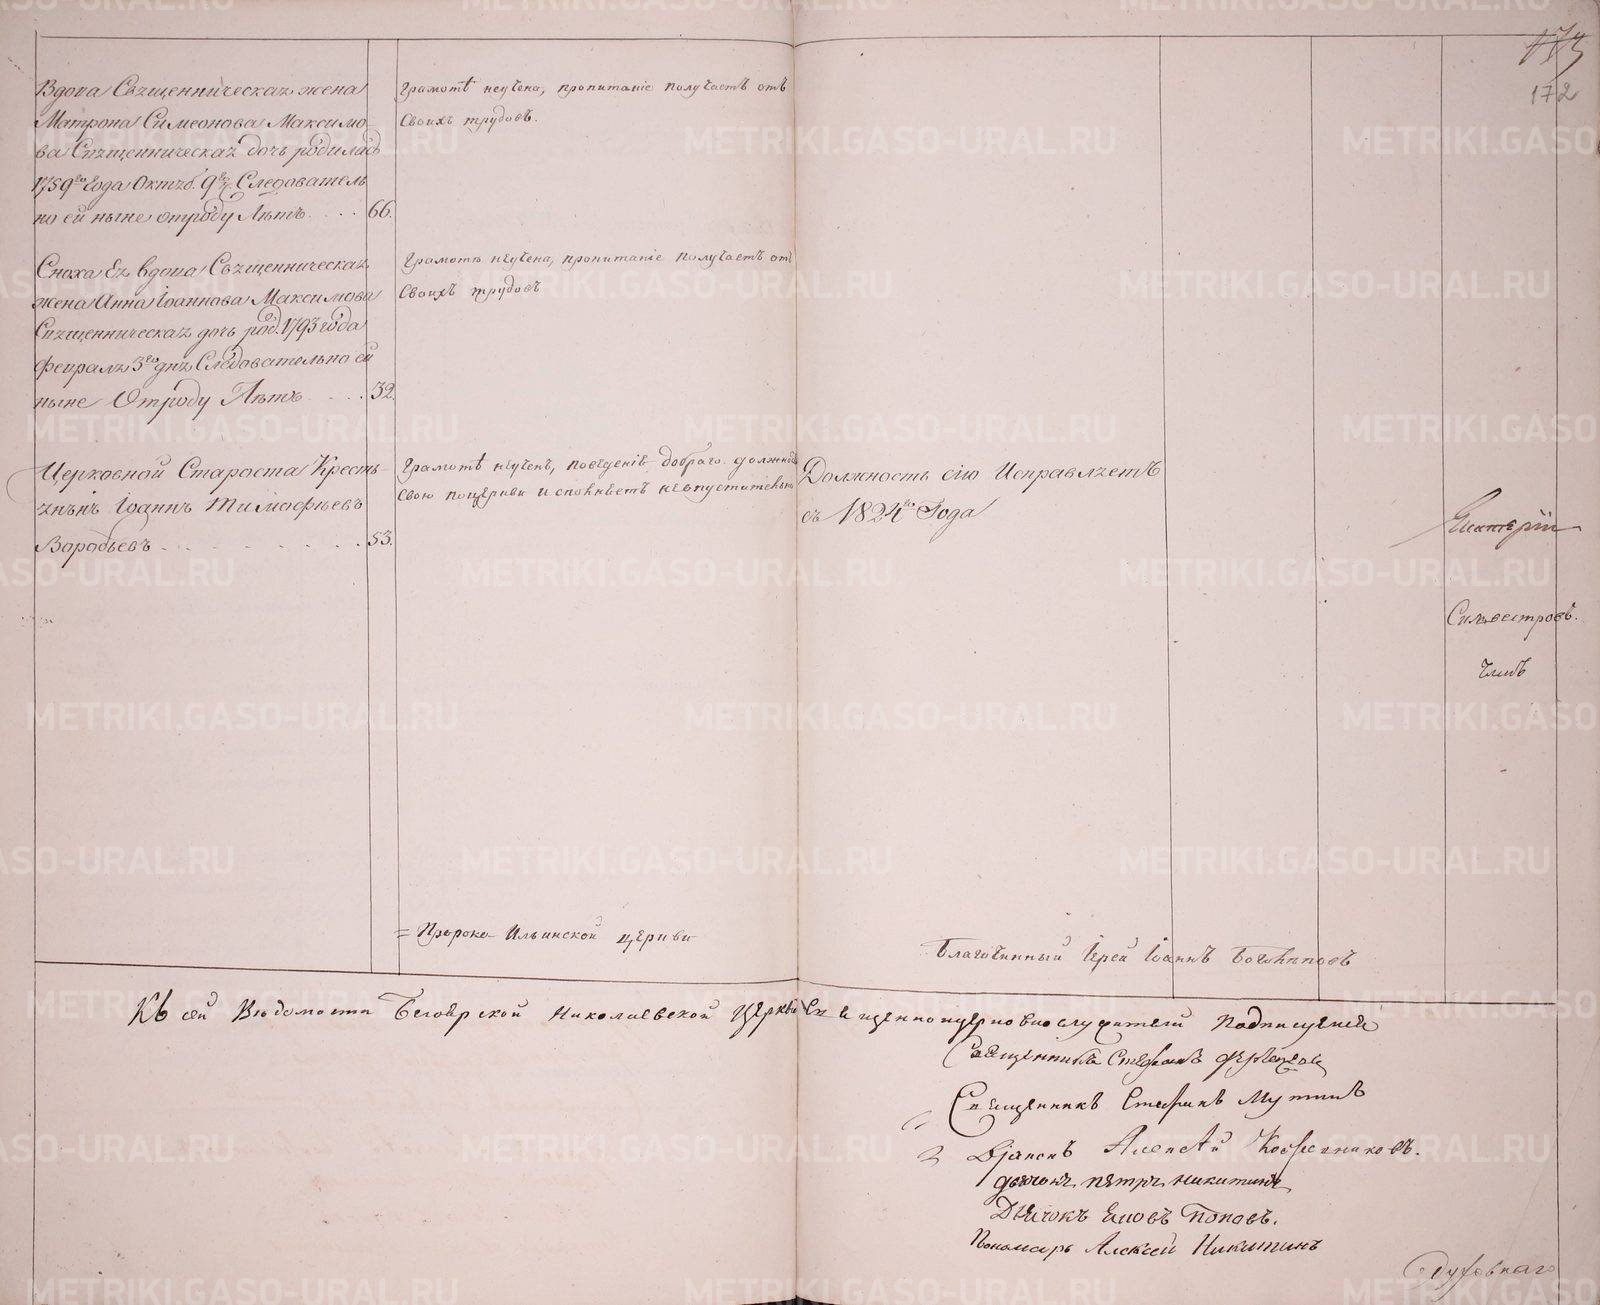 173
172
Вдова Священническая жена
Матрона Симеонова Максимо-
ва Священническая дочь родилась
1759го года Октяб. 9го Следователь
но ей ныне отроду Летъ 66.
грамотѣ неучена, пропитаніе получаетъ отъ
своихъ трудовъ.
Сноха Ея вдова Священническая
жена Анна Іоаннова Максимова
Священническая дочь род. 1793 года
февраля 3го дня Следовательно ей
ныне Отроду Летъ 32.
грамотѣ неучена, пропитаніе получаетъ отъ
своихъ трудовъ
Церковной Староста Кресть-
янинъ Іоаннъ Тимофѣевъ
Воробьевъ 53.
грамотѣ неученъ, поведенія добраго должность
свою поцеркви исполняетъ неопустительно
Должность сію Исправляетъ
съ 1824го Года
Сильвестровъ.
= Пророко-Ильинской церкви
Благочинный Іерей Іоаннъ
Къ сей Ведомости Николаевской Церкви Священноцерковнослужители
Священникъ Стефанъ
Священникъ Стефанъ Мутинъ
Діаконъ Алексѣй
дьячокъ петръ никитинъ
Дьячокъ Попов.
Пономарь Алексей Никитинъ
Духовнаго